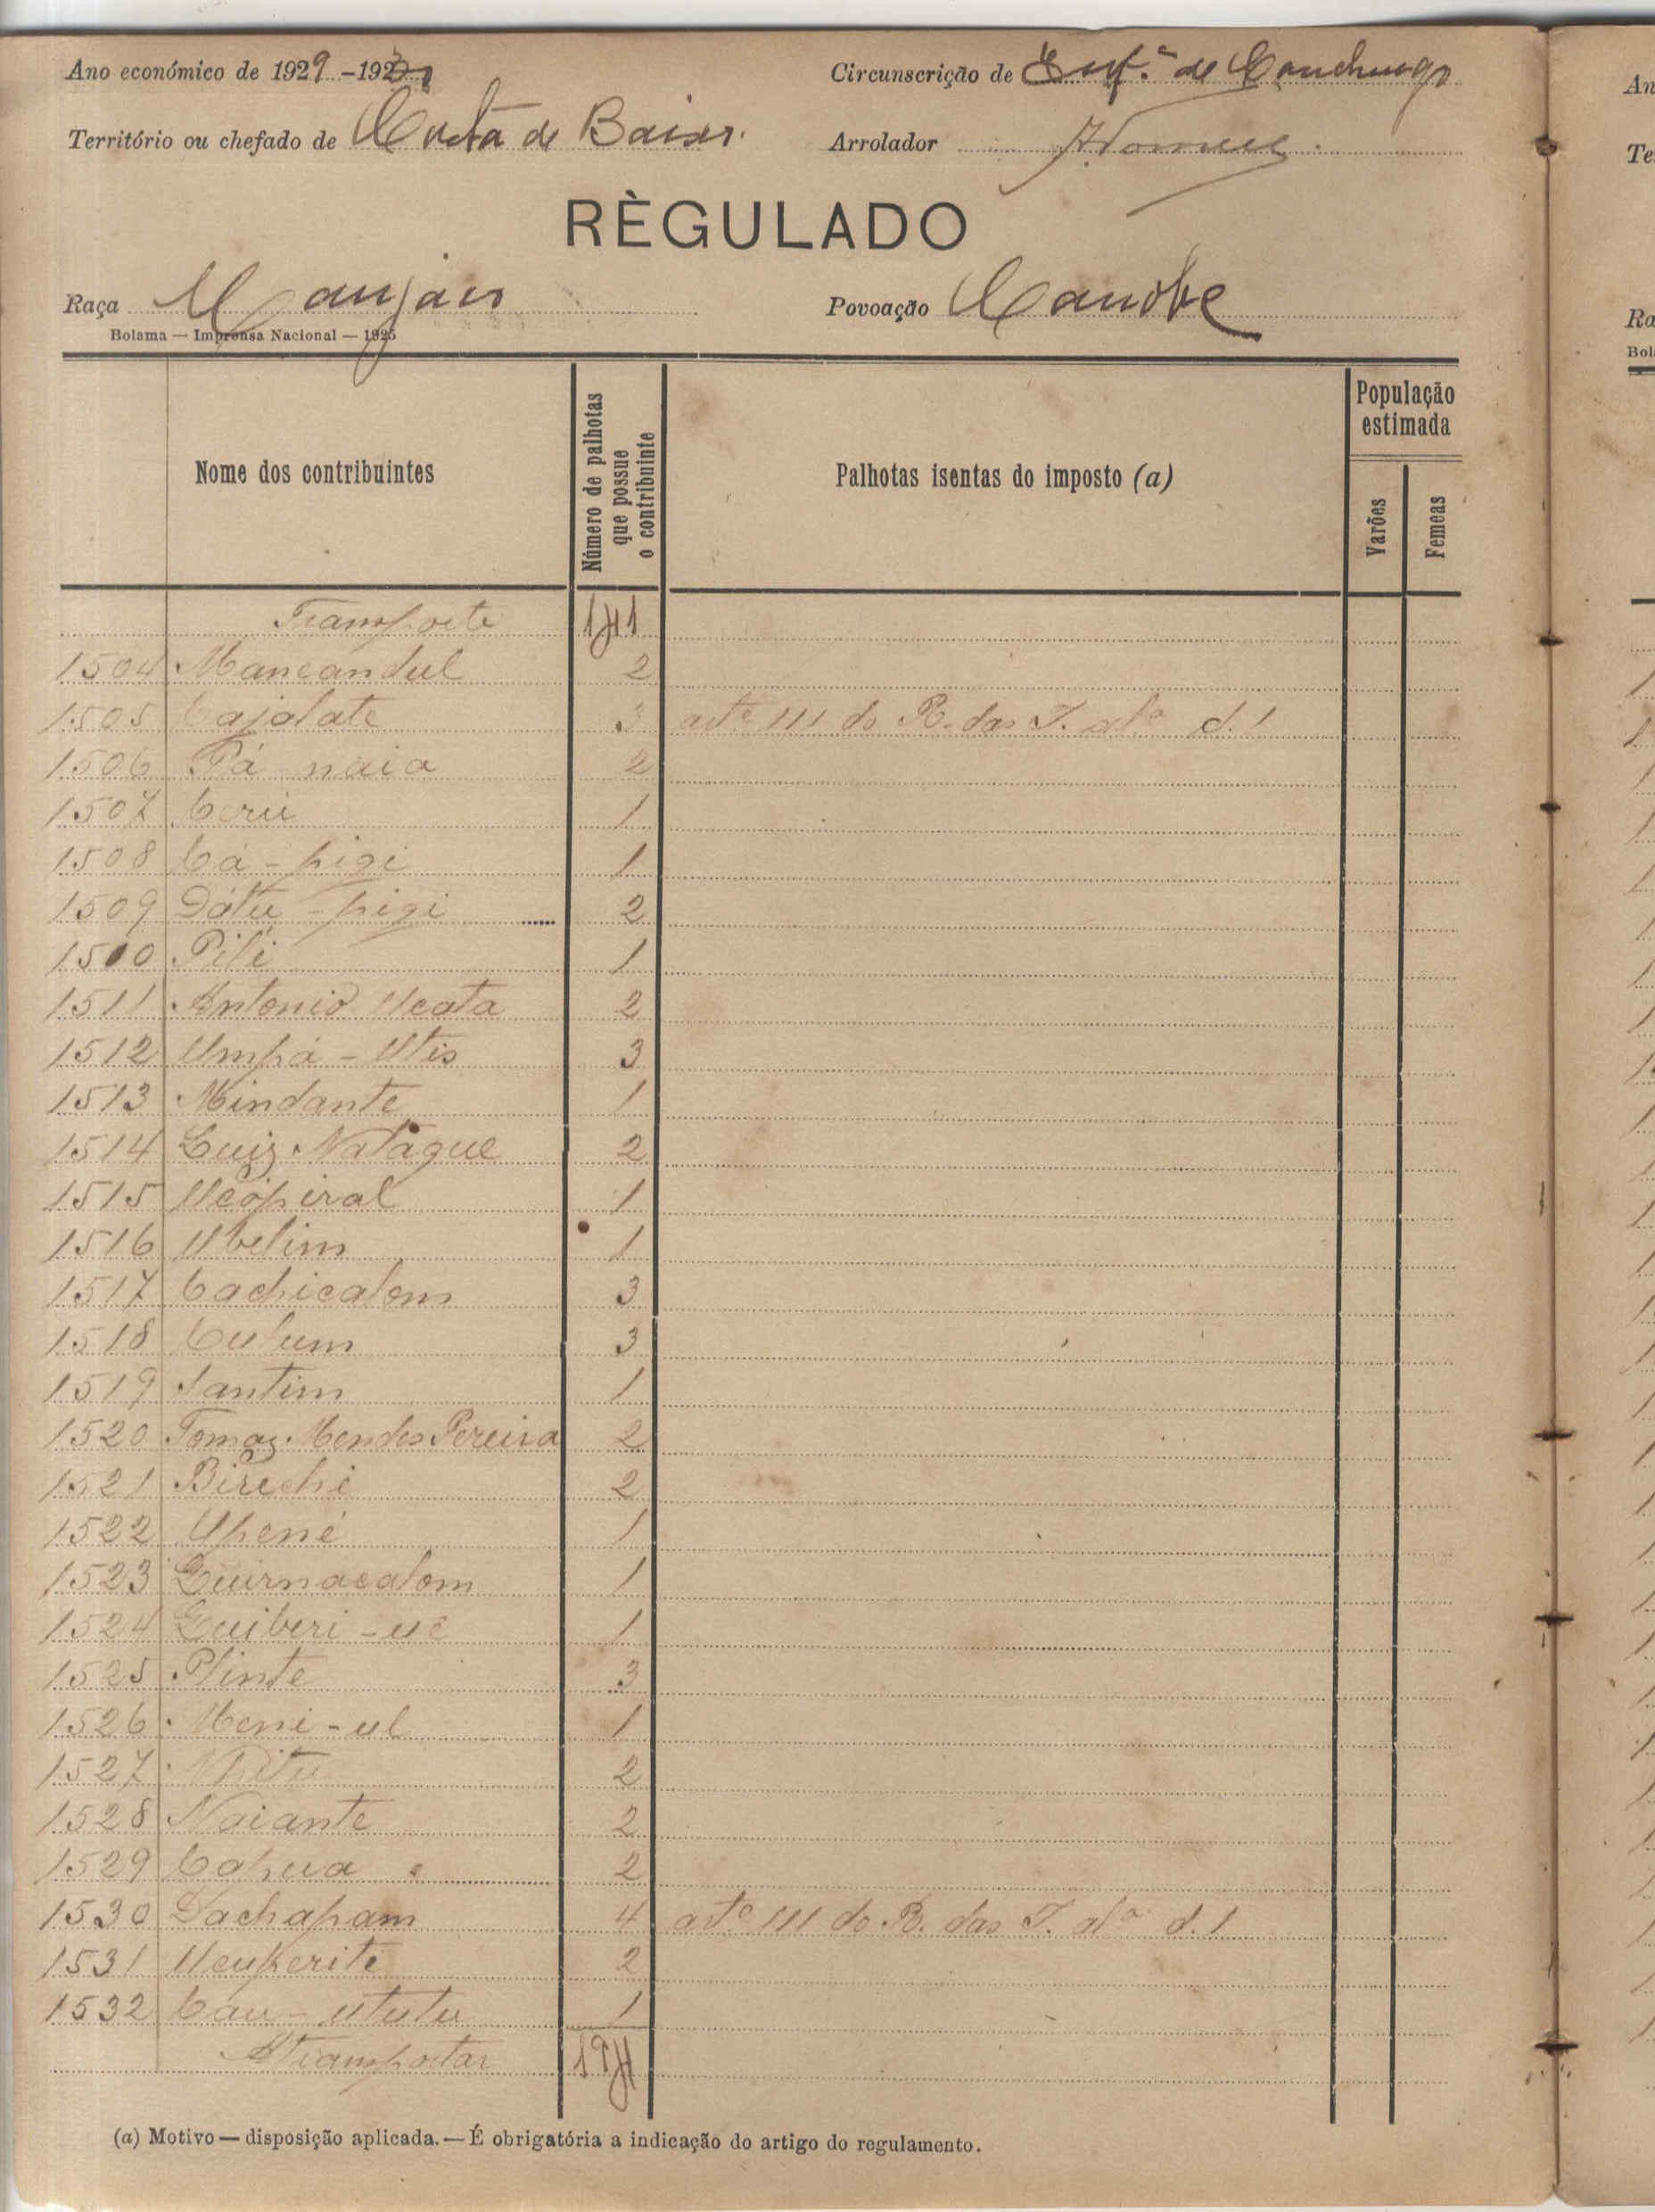 Ano económico de 1929-1930
Circunscrição de de Canchungo
Território ou chefado de Costa de Baixo.
Arrolador
RÈGULADO
Raça Manjaco
Povoação Canobe
Bolama — Imprensa Nacional — 1925
Nome dos contribuintes
Número de palhotas que possue o contribuinte
Palhotas isentas do imposto (a)
População estimada
Varões
Femeas
Transporte 141
1504 Mancandul 2
1505 Cajalate 3 artº 111 do R. das I. alª d.1
1506 Pá-naia 2
1507 Cerú 1
1508 Cá-pigi 1
1509 Dátu-pigi 2
1510 Pili 1
1511 Antonio Ucata 2
1512 Umpá-Utis 3
1513 Mindante 1
1514 Luiz Natágue 2
1515 Ucópiral 1
1516 Ubelim 1
1517 Cachicalom 3
1518 Culum 3
1519 Santim 1
1520 Tomaz Mendes Pereira 2
1521 Birechi 2
1522 Upené 1
1523 Quirnacalom 1
1524 Quiberi-uc 1
1525 Plinte 3
1526 Meni-ul 1
1527 2
1528 Naiante 2
1529 Capua 2
1530 Dachapam 4 artº 111 do R. das I. alª d.1
1531 Ucuperite 2
1532 Cau-ututu 1
A transportar 191
(a) Motivo — disposição aplicada. — É obrigatória a indicação do artigo do regulamento.